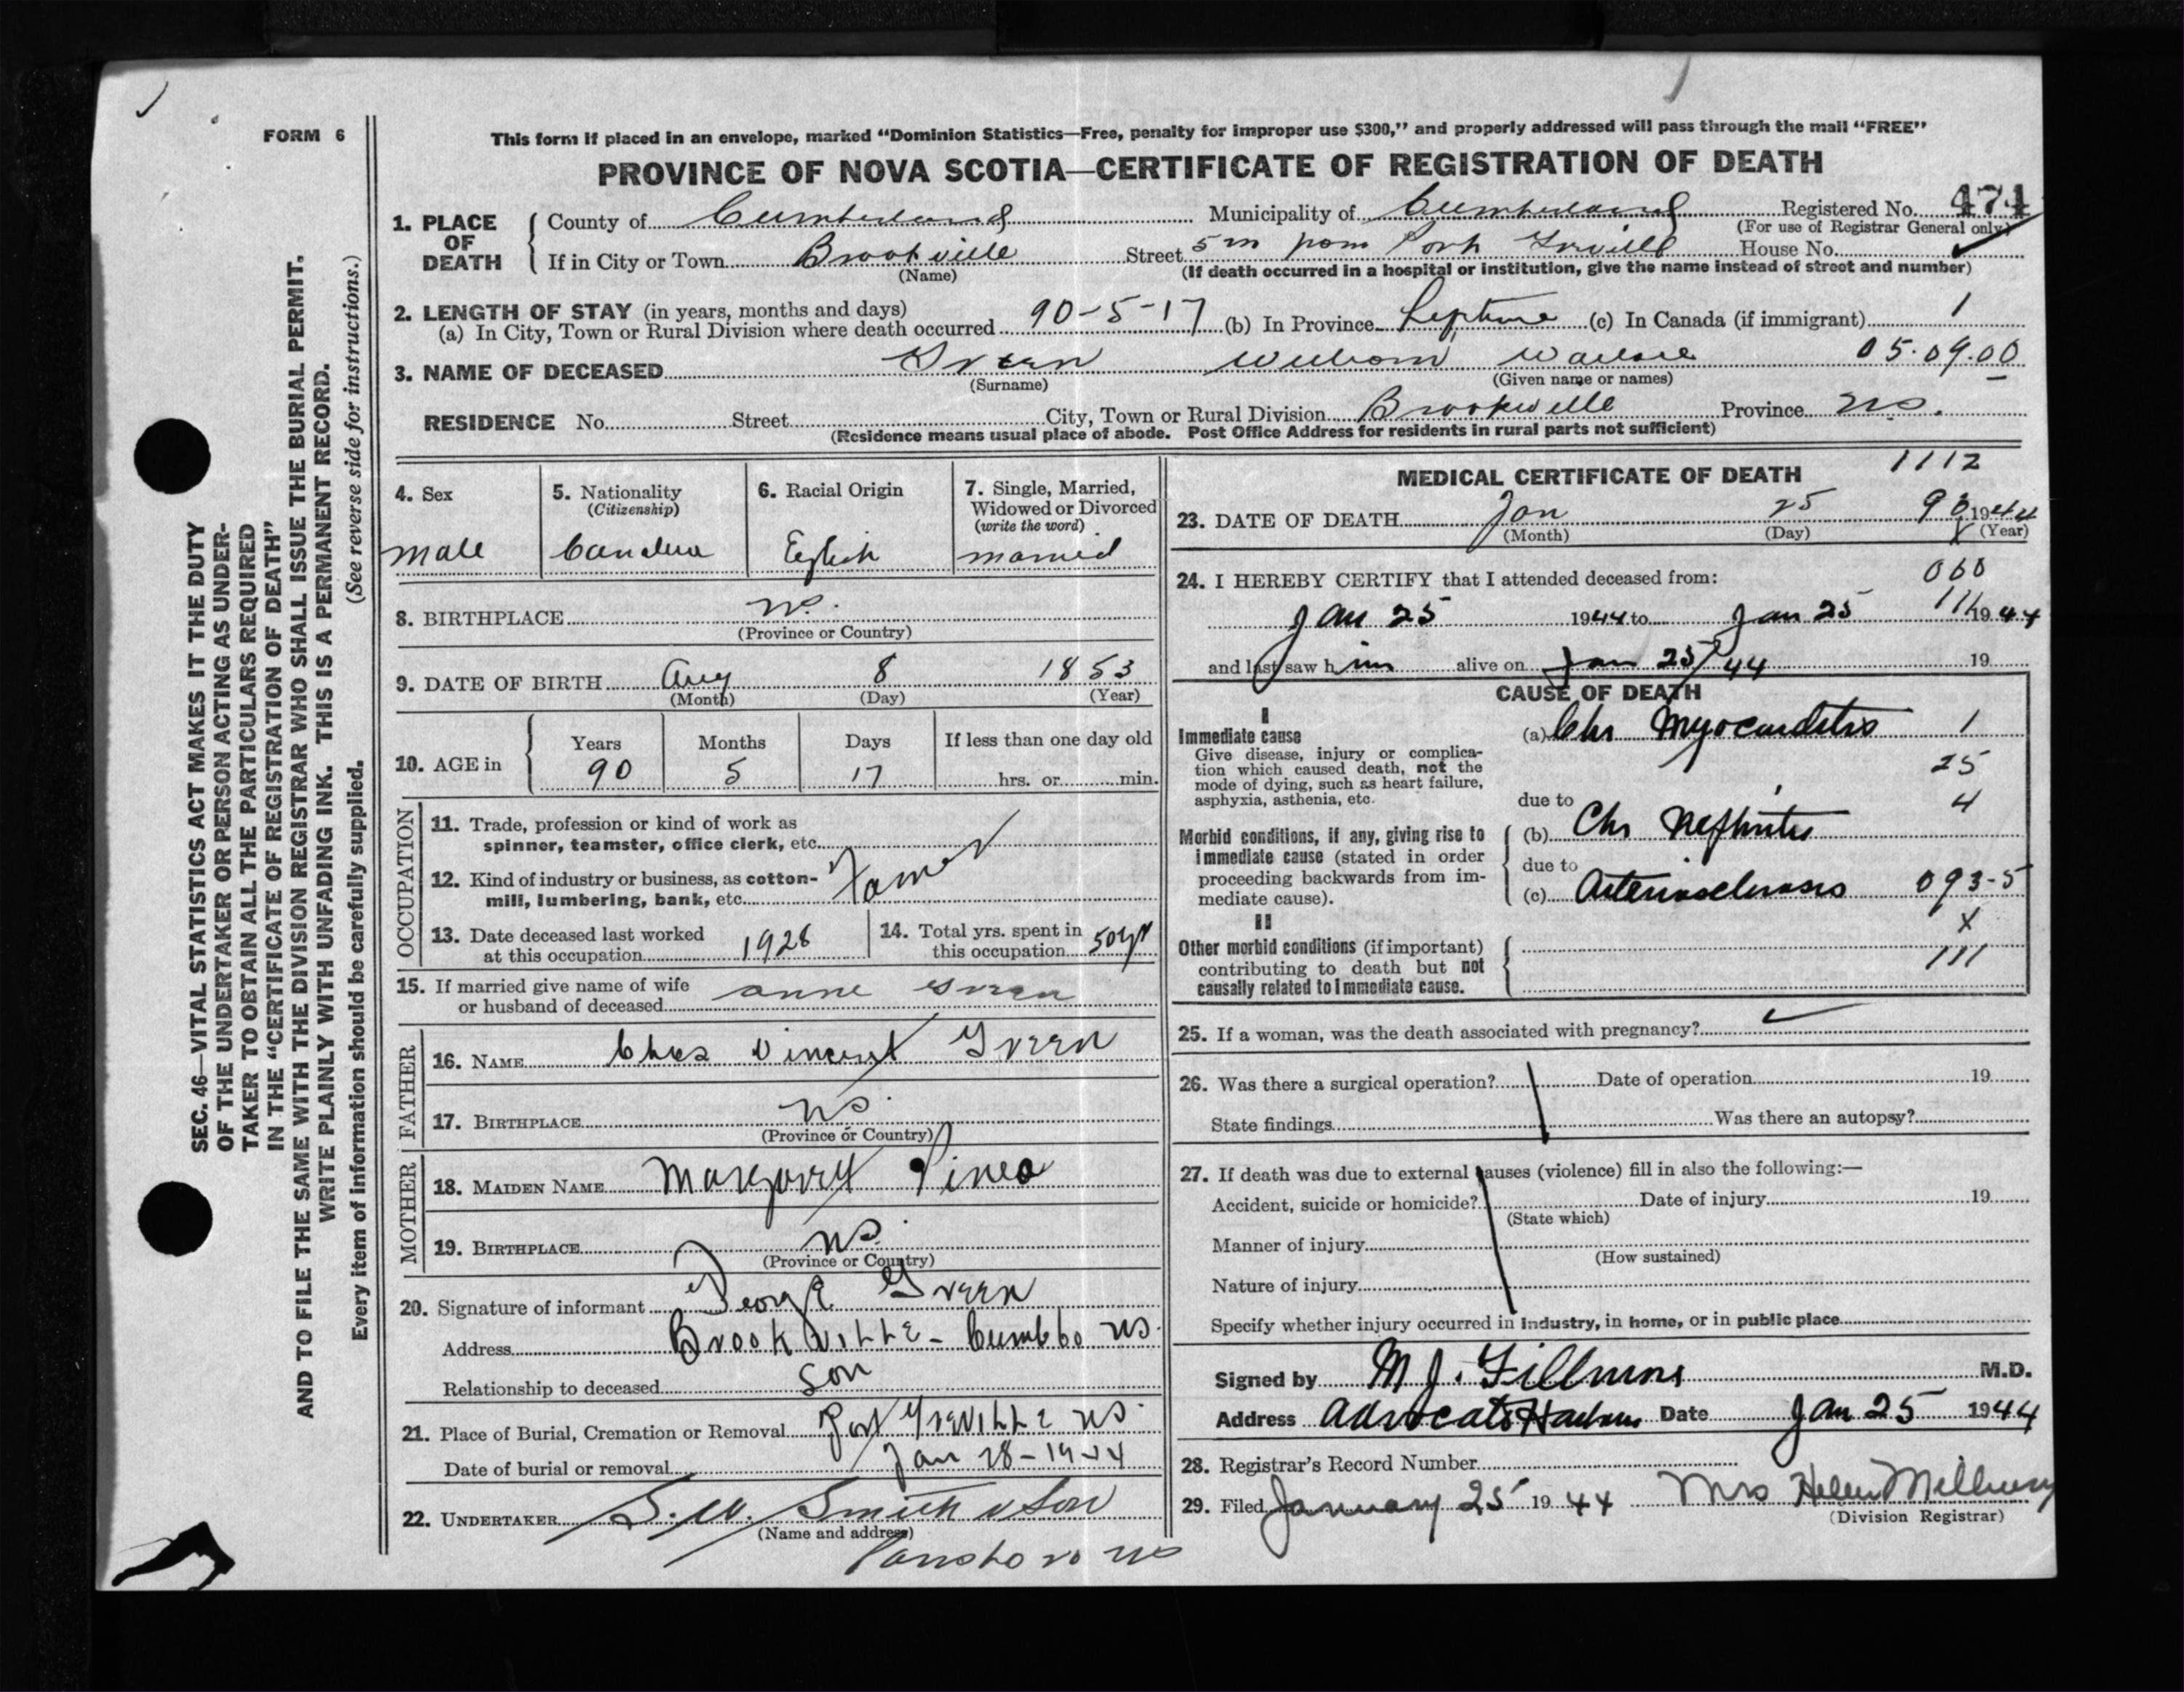 FORM 6
This form if placed in an envelope, marked "Dominion Statistics—Free, penalty for improper use $300," and properly addressed will pass through the mail "FREE"
PROVINCE OF NOVA SCOTIA—CERTIFICATE OF REGISTRATION OF DEATH
1. PLACE OF DEATH
County of Cumberland Municipality of Cumberland Registered No. 474
(For use of Registrar General only)
If in City or Town Brookville Street 5 m from Port Greville House No.
(Name) (If death occurred in a hospital or institution, give the name instead of street and number)
2. LENGTH OF STAY (in years, months and days)
(a) In City, Town or Rural Division where death occurred 90-5-17 (b) In Province Lifetime (c) In Canada (if immigrant) 1
3. NAME OF DECEASED Green William Wallace 05.09.00
(Surname) (Given name or names)
RESIDENCE No. Street City, Town or Rural Division Brookville Province NS.
(Residence means usual place of abode. Post Office Address for residents in rural parts not sufficient)
4. Sex
male
5. Nationality
(Citizenship)
6. Racial Origin
English
7. Single, Married, Widowed or Divorced
(write the word)
married
8. BIRTHPLACE NS.
(Province or Country)
9. DATE OF BIRTH Aug 8 1853
(Month) (Day) (Year)
10. AGE in
Years Months Days If less than one day old
90 5 17 hrs. or min.
OCCUPATION
11. Trade, profession or kind of work as
spinner, teamster, office clerk, etc.
12. Kind of industry or business, as cotton-
mill, lumbering, bank, etc. Farmer
13. Date deceased last worked
at this occupation 1928
14. Total yrs. spent in
this occupation 50 yr
15. If married give name of wife
or husband of deceased anne Green
FATHER
16. NAME Chas Vincent Green
17. BIRTHPLACE NS.
(Province or Country)
MOTHER
18. MAIDEN NAME Pineo
19. BIRTHPLACE NS.
(Province or Country)
20. Signature of informant George Green
Address Brookville - Cumb Co NS.
Relationship to deceased Son
21. Place of Burial, Cremation or Removal Port Greville NS.
Date of burial or removal Jan 28-1944
22. UNDERTAKER S.W. Smith & Son
(Name and address)
Parrsboro NS
MEDICAL CERTIFICATE OF DEATH 1112
23. DATE OF DEATH Jan 25 1944
(Month) (Day) (Year)
24. I HEREBY CERTIFY that I attended deceased from:
Jan 25 1944 to Jan 25 1944
and last saw him alive on Jan 25/44 19
CAUSE OF DEATH
I
Immediate cause
Give disease, injury or complica-
tion which caused death, not the
mode of dying, such as heart failure,
asphyxia, asthenia, etc.
(a) Chr Myocarditis 1
25
due to 4
Morbid conditions, if any, giving rise to
immediate cause (stated in order
proceeding backwards from im-
mediate cause).
(b) Chr Nephritis
due to
(c) Arteriosclerosis 093-5
X
II
Other morbid conditions (if important)
contributing to death but not
causally related to immediate cause.
111
25. If a woman, was the death associated with pregnancy?
26. Was there a surgical operation? Date of operation 19
State findings Was there an autopsy?
27. If death was due to external causes (violence) fill in also the following:—
Accident, suicide or homicide? Date of injury 19
(State which)
Manner of injury
(How sustained)
Nature of injury
Specify whether injury occurred in industry, in home, or in public place
Signed by M J. Fillmore M.D.
Address Advocate Harbour Date Jan 25 1944
28. Registrar's Record Number
29. Filed January 25 1944 Mrs Helen
(Division Registrar)
SEC. 46—VITAL STATISTICS ACT MAKES IT THE DUTY
OF THE UNDERTAKER OR PERSON ACTING AS UNDER-
TAKER TO OBTAIN ALL THE PARTICULARS REQUIRED
IN THE "CERTIFICATE OF REGISTRATION OF DEATH"
AND TO FILE THE SAME WITH THE DIVISION REGISTRAR WHO SHALL ISSUE THE BURIAL PERMIT.
WRITE PLAINLY WITH UNFADING INK. THIS IS A PERMANENT RECORD.
Every item of information should be carefully supplied. (See reverse side for instructions.)